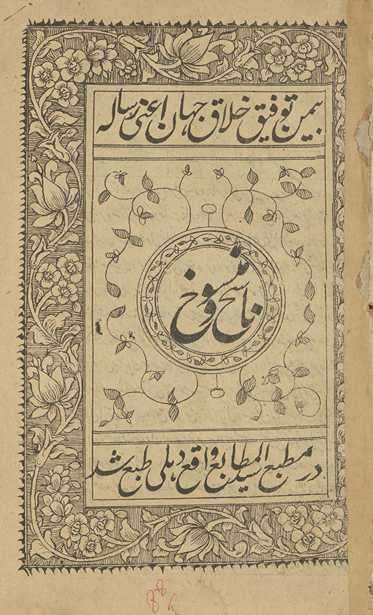 بیمن توفیق خلاق جهان اعنی رساله
ناسخ و منسوخ
در مطبع سید المطابع واقع دہلی طبع شد